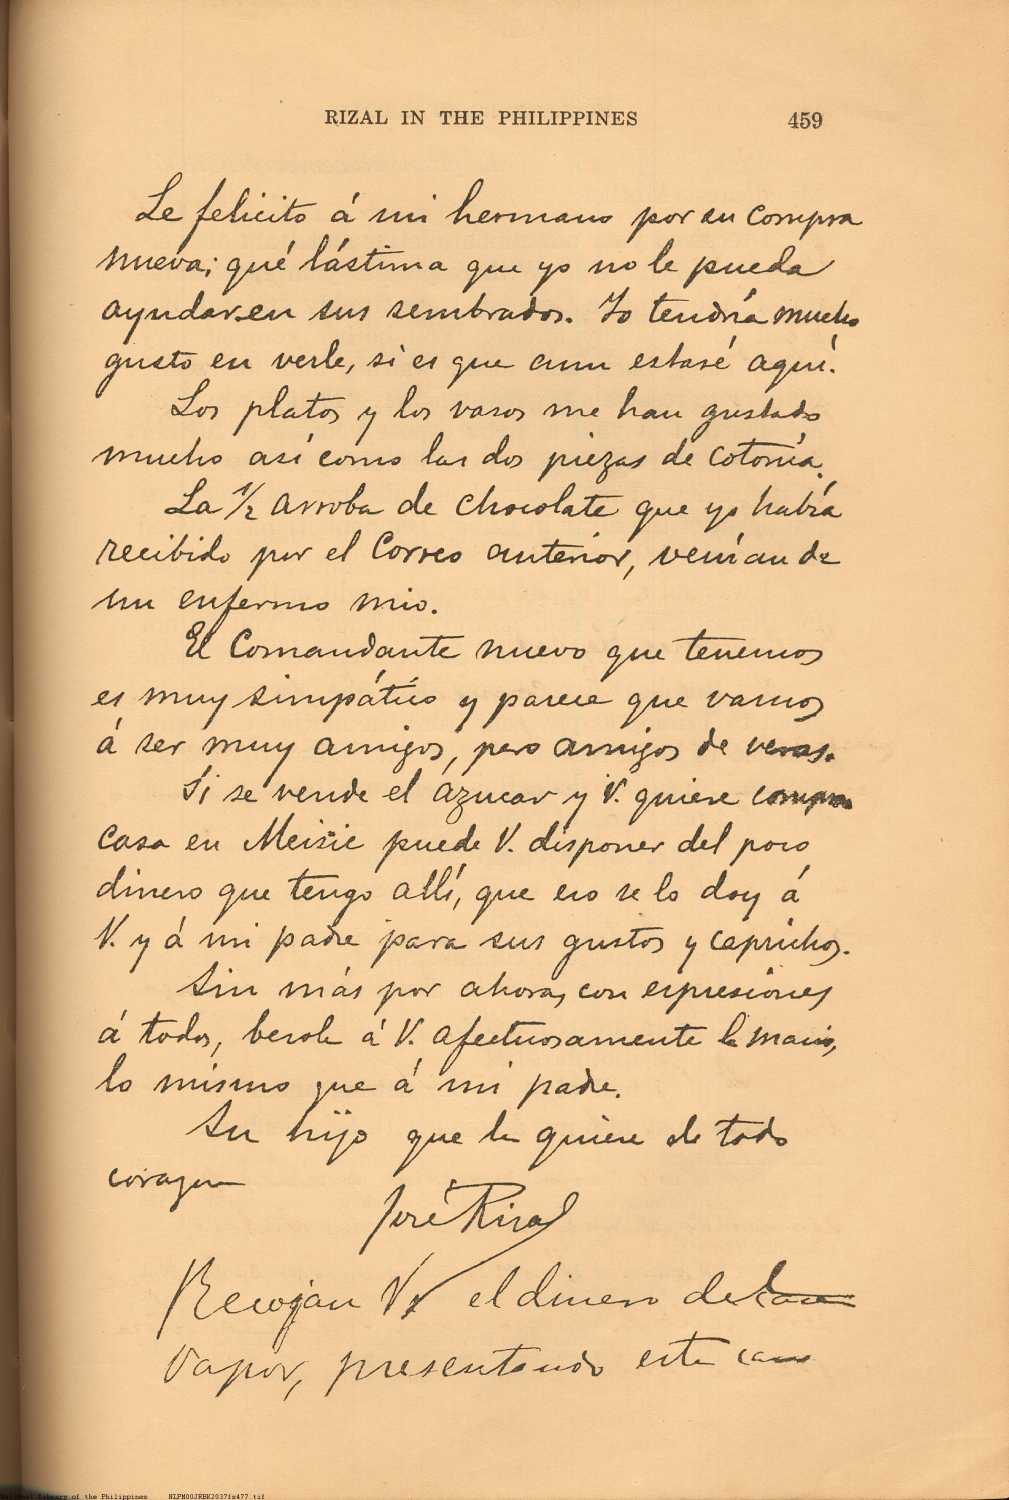 RIZAL IN THE PHILIPPINES 459
Le felicito á mi hermano por su compra
nueva; qué lástima que yo no le pueda
ayudar en sus sembrados. Yo tendría mucho
gusto en verle, si es que aun estaré aquí.
Los platos y los vasos me han gustado
mucho así como las dos piezas de cotonía.
La 1/2 arroba de chocolate que yo había
recibido por el Correo anterior, venían de
un enfermo mio.
El Comandante nuevo que tenemos
es muy simpático y parece que vamos
á ser muy amigos, pero amigos de veras.
Si se vende el azucar y V. quiere comprar
casa en Meisic puede V. disponer del poco
dinero que tengo allí, que eso se lo doy á
V. y á mi padre para sus gustos y caprichos.
Sin más por ahora, con espresiones
á todos, besole á V. afectuosamente la mano,
lo mismo que á mi padre.
Su hijo que le quiere de todo
corazon
José Rizal
Recojan Vs el dinero de
vapor, presentando esta
National Library of the Philippines NLPM00JRBK2037fs477.tif